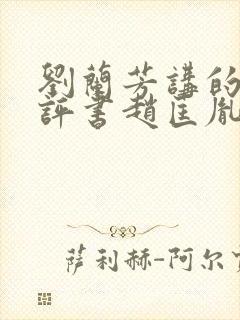 劉蘭芳講的
評書趙匡胤
萨利赫-阿尔